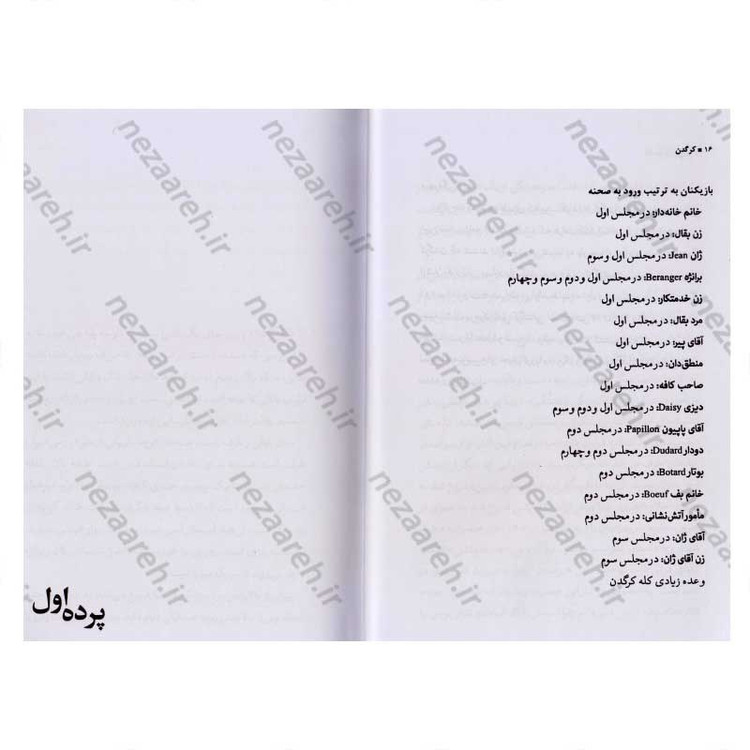 ۱۶ ■ کرگدن
بازیکنان به ترتیب ورود به صحنه
خانم خانه‌دار: در مجلس اول
زن بقال: در مجلس اول
ژان Jean: در مجلس اول و سوم
برانژه Beranger: در مجلس اول و دوم و سوم و چهارم
زن خدمتکار: در مجلس اول
مرد بقال: در مجلس اول
آقای پیر: در مجلس اول
منطق‌دان: در مجلس اول
صاحب کافه: در مجلس اول
دیزی Daisy: در مجلس اول و دوم و سوم
آقای پاپیون Papillon: در مجلس دوم
دودار Dudard: در مجلس دوم و چهارم
بوتار Botard: در مجلس دوم
خانم بف Boeuf: در مجلس دوم
مأمور آتش‌نشانی: در مجلس دوم
آقای ژان: در مجلس سوم
زن آقای ژان: در مجلس سوم
و عده زیادی کله کرگدن
پرده اول
nezaareh.ir
nezaareh.ir
nezaareh.ir
nezaareh.ir
nezaareh.ir
nezaareh.ir
nezaareh.ir
nezaareh.ir
nezaareh.ir